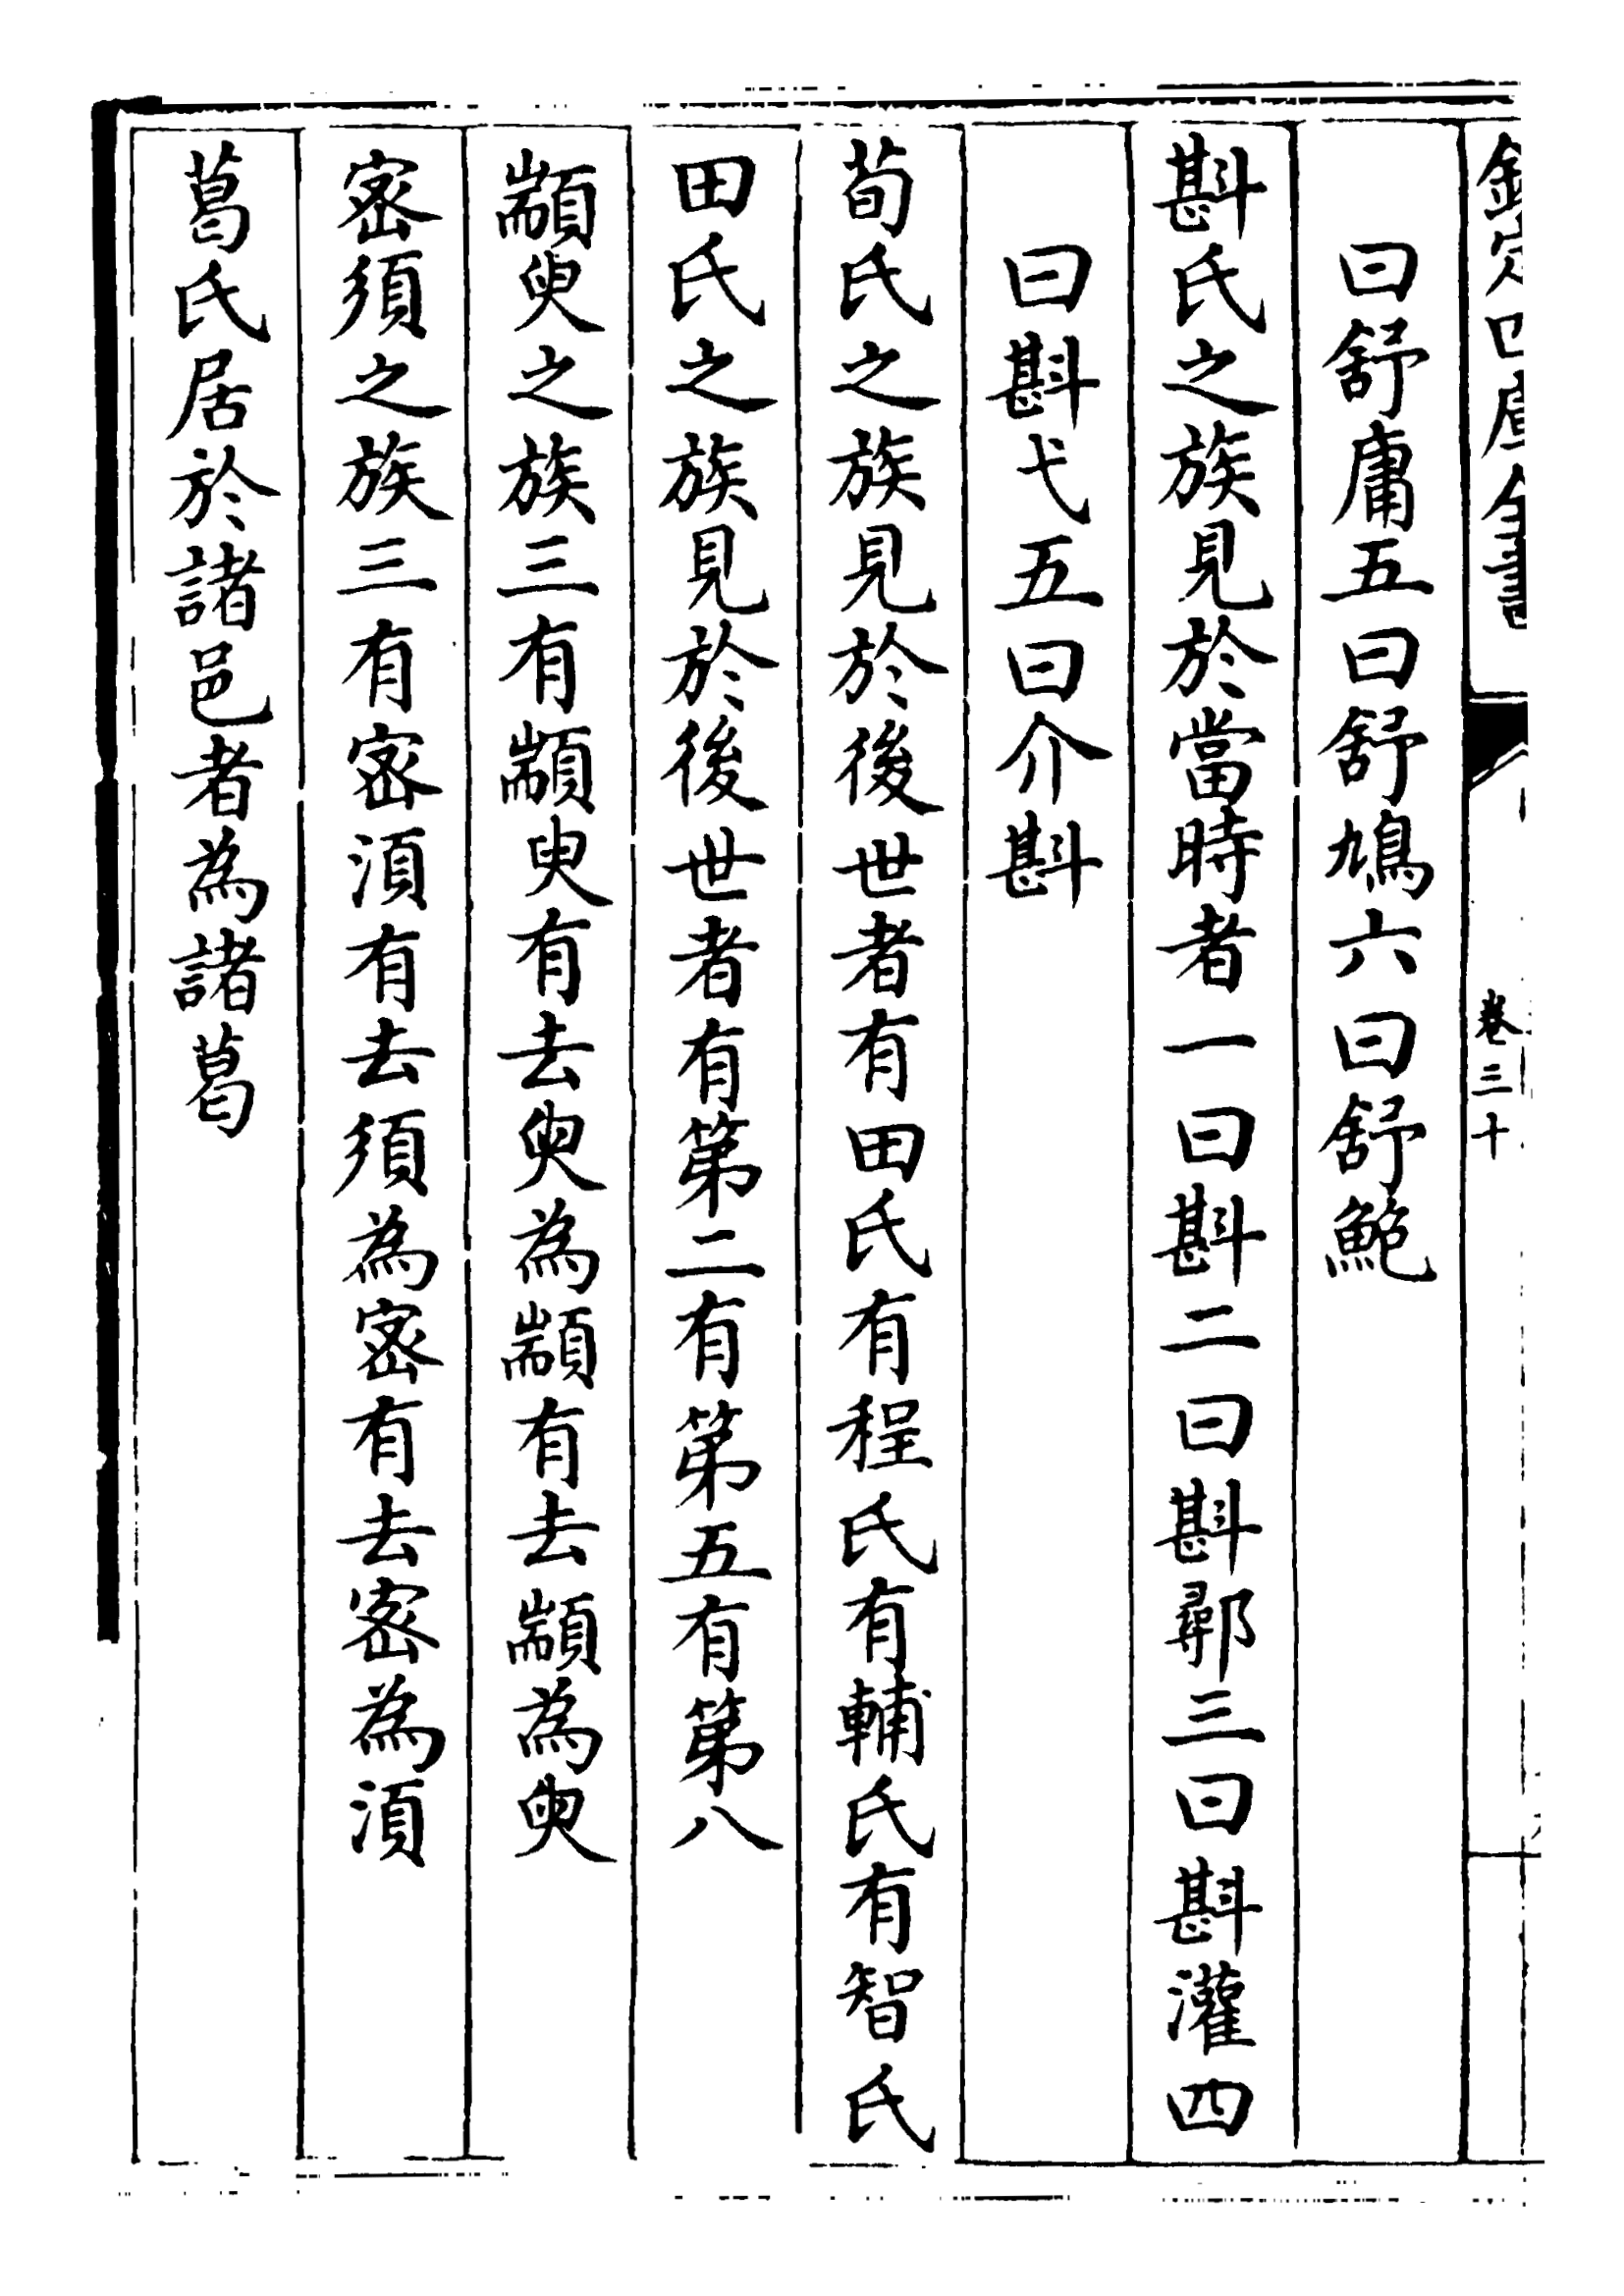 欽定四庫全書
卷三十
曰舒庸五曰舒鳩六曰舒鮑
斟氏之族見於當時者一曰斟二曰斟鄩三曰斟灌四
曰斟弋五曰介斟
荀氏之族見於後世者有田氏有程氏有輔氏有智氏
田氏之族見於後世者有第二有第五有第八
顓臾之族三有顓臾有去臾為顓有去顓為臾
密須之族三有密湏有去須為密有去密為湏
葛氏居於諸邑者為諸葛